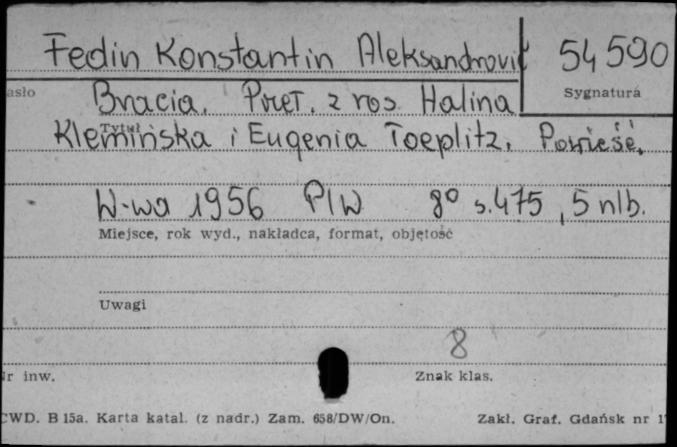 Fedin Konstantin Aleksandrovič 54 590
asło Bracia. Przeł. z ros. Halina Sygnatura
Tytuł Klemińska i Eugenia Toeplitz. Powieść.
W-wa 1956 PIW 8° s. 475, 5 nlb.
Miejsce, rok wyd., nakładca, format, objętość
Uwagi
8
Nr inw. Znak klas.
CWD. B 15a. Karta katal. (z nadr.) Zam. 658/DW/On. Zakł. Graf. Gdańsk nr 1